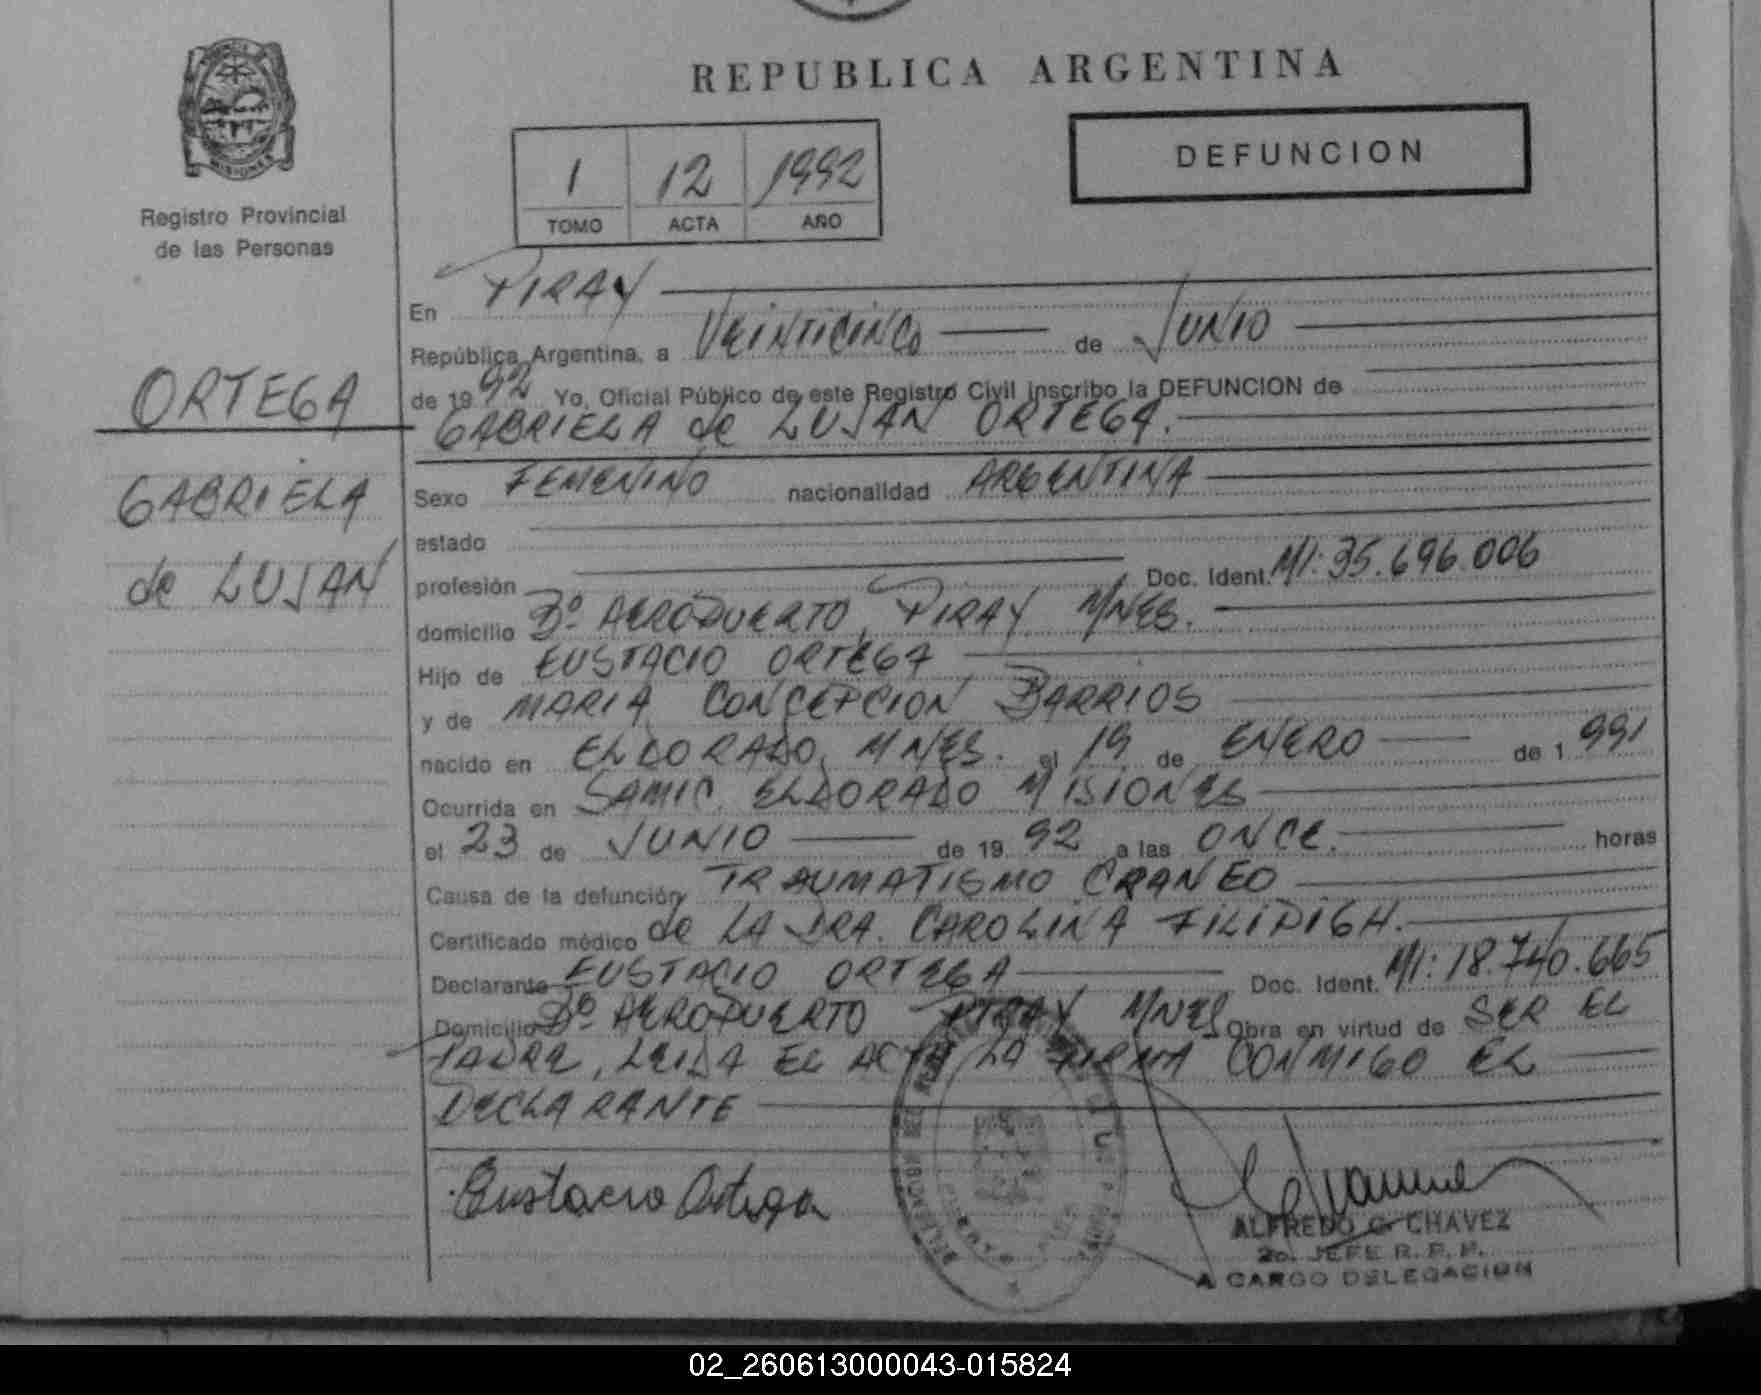 REPUBLICA ARGENTINA
MISIONES
Registro Provincial
de las Personas
1 12 1992
TOMO ACTA AÑO
DEFUNCION
ORTEGA
GABRIELA
de LUJAN
En PIRAY
República Argentina, a VEINTICINCO de JUNIO
de 1992 Yo, Oficial Público de este Registro Civil inscribo la DEFUNCION de
GABRIELA de LUJAN ORTEGA.
Sexo FEMENINO nacionalidad ARGENTINA
estado
profesión Doc. Ident. MI: 35.696.006
domicilio Bº AEROPUERTO, PIRAY MNES.
Hijo de EUSTACIO ORTEGA
y de MARIA CONCEPCION BARRIOS
nacido en ELDORADO, MNES. el 19 de ENERO de 1.991
Ocurrida en SAMIC ELDORADO MISIONES
el 23 de JUNIO de 1992 a las ONCE. horas
Causa de la defunción TRAUMATISMO CRANEO
Certificado médico de LA DRA. CAROLINA
Declarante EUSTACIO ORTEGA Doc. Ident. MI: 18.740.665
Domicilio Bº AEROPUERTO PIRAY MNES Obra en virtud de SER EL
PADRE, LEIDA EL ACTA LA FIRMA CONMIGO EL
DECLARANTE
Eustacio Ortega
ALFREDO G. CHAVEZ
2o. JEFE R. P. P.
A CARGO DELEGACION
02_260613000043-015824